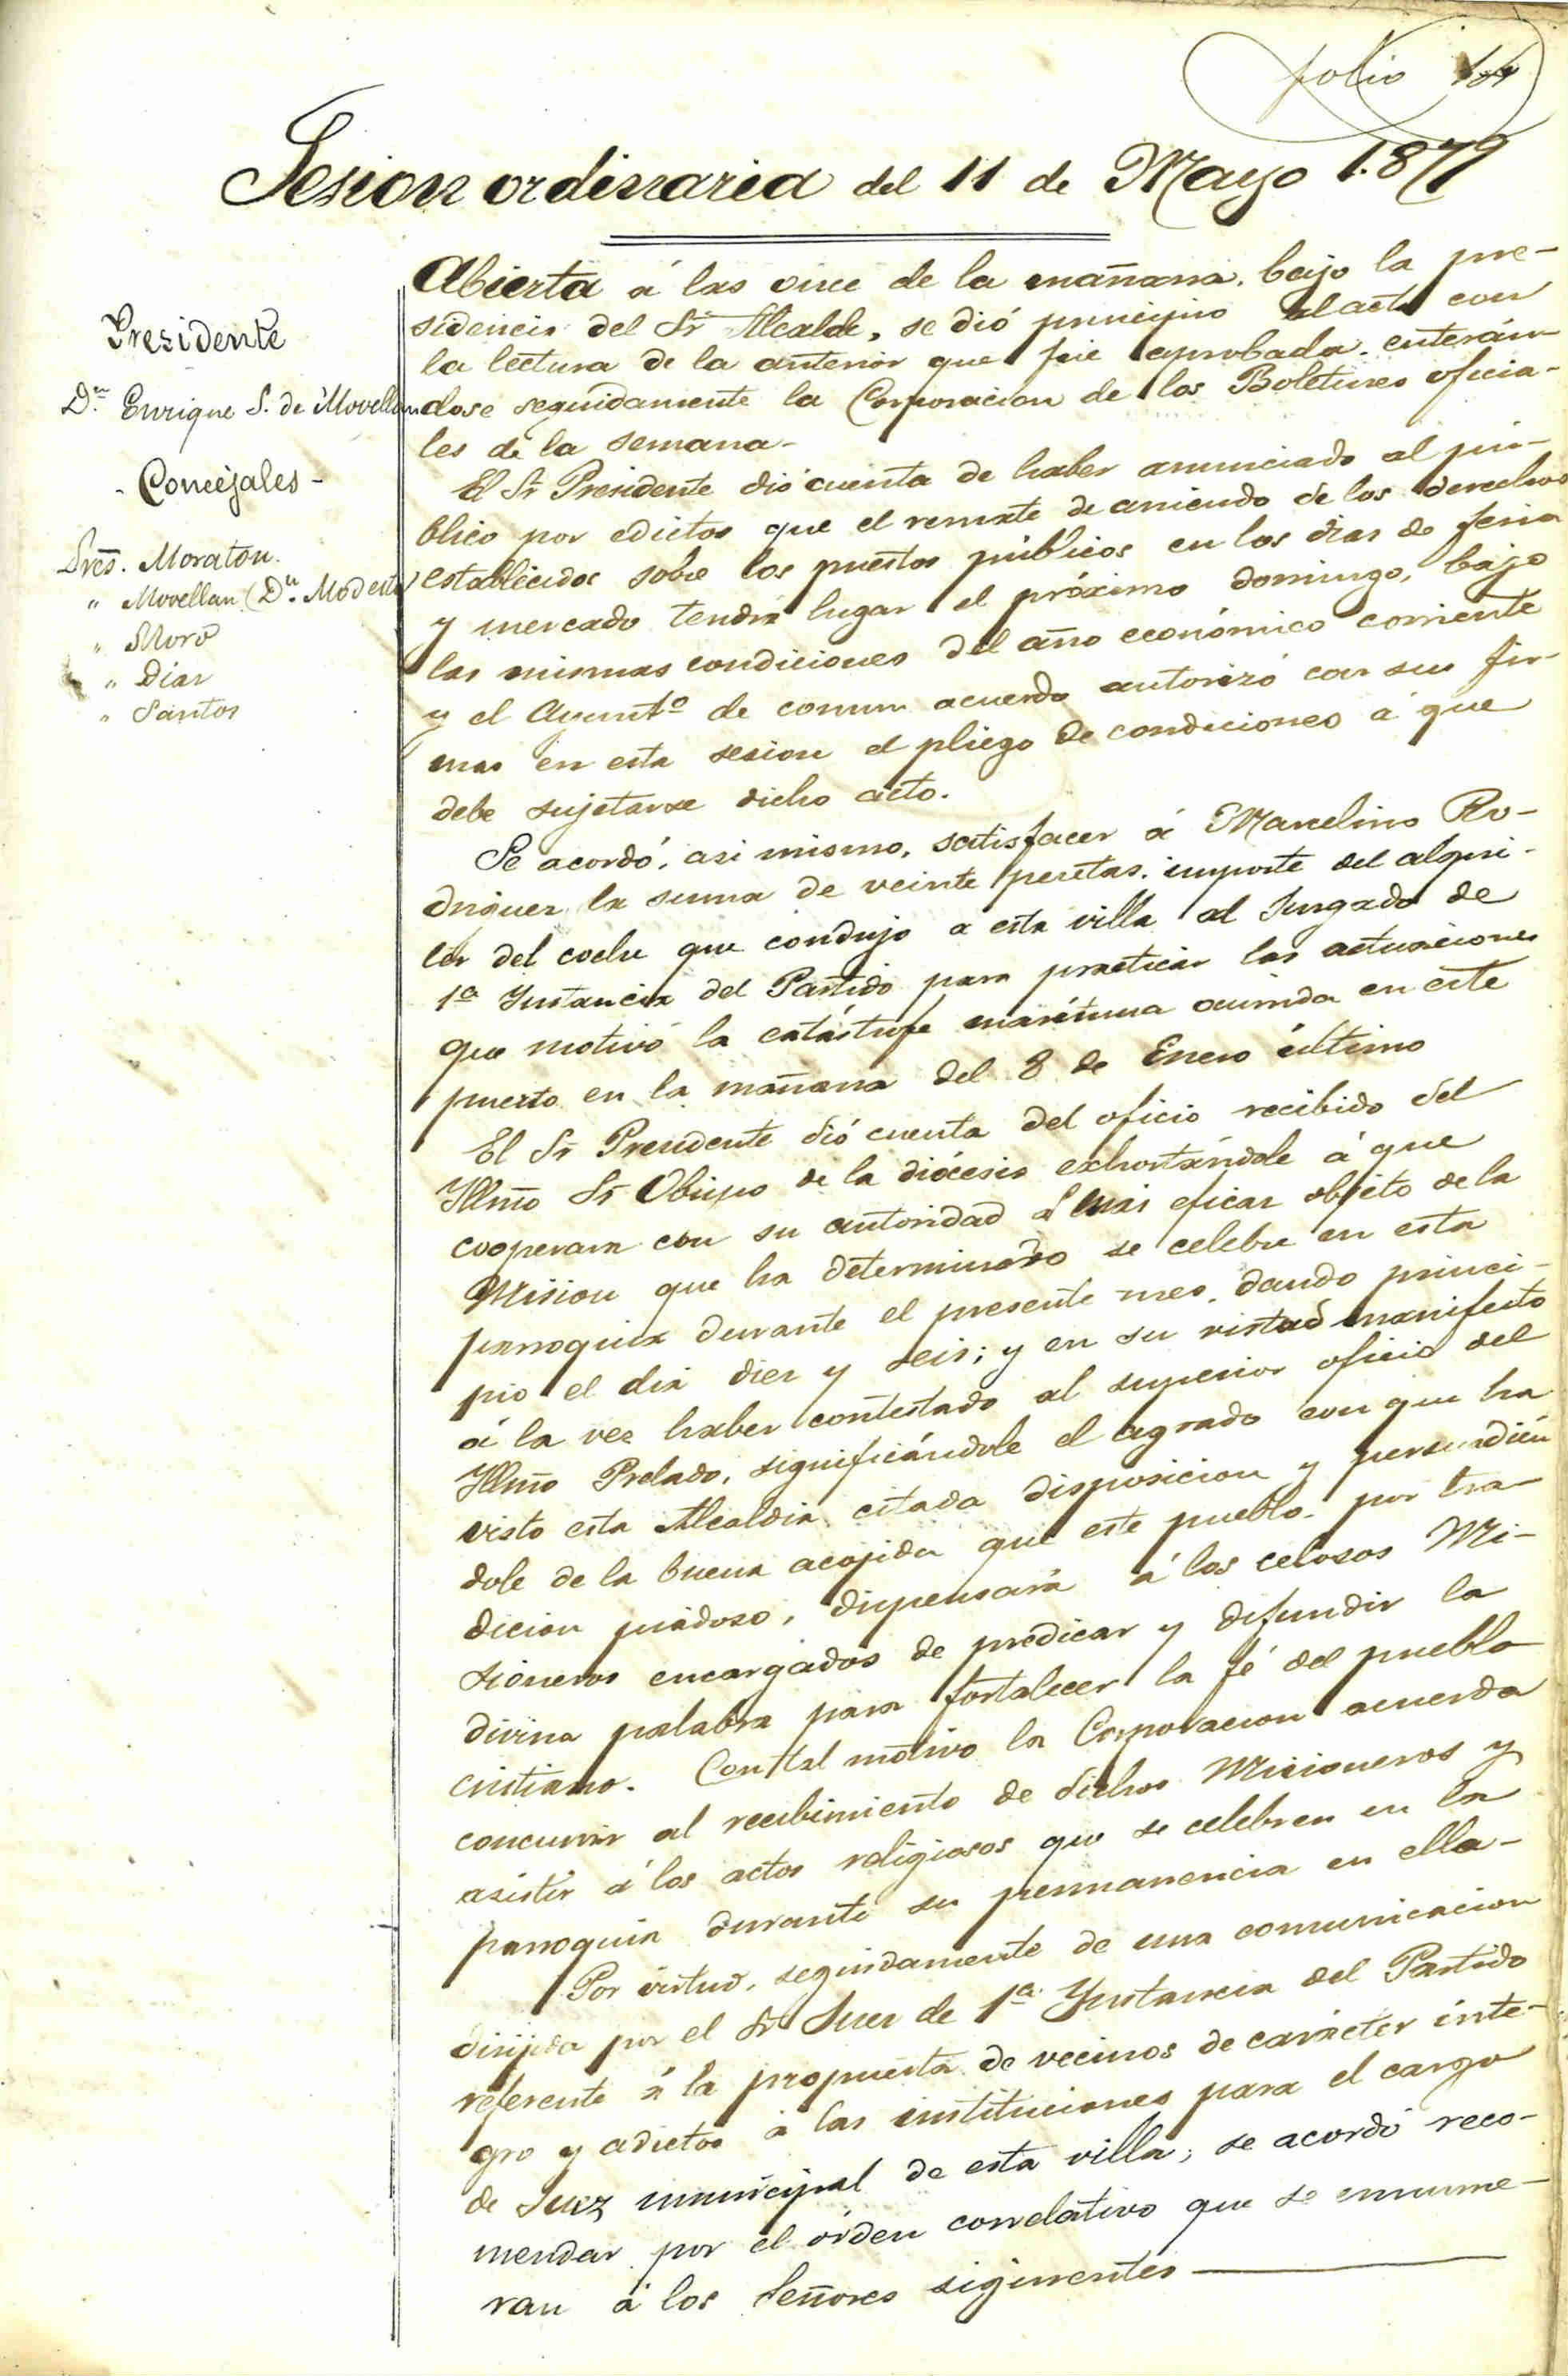 folio
Sesion ordinaria del 11 de Mayo 1.879
Presidente
Dn. Enrique S. de Movellan
- Concejales -
Sres. Moraton.
" Movellan (Dn. Modesto)
" Moro
" Diaz
" Santos
Abierta á las once de la mañana, bajo la pre-
sidencia del Sr Alcalde, se dió principio al acto con
la lectura de la anterior que fué aprobada, enterán-
dose seguidamente la Corporacion de los Boletines oficia-
les de la semana-
El Sr Presidente dió cuenta de haber anunciado al pú-
blico por edictos que el remate de arriendo de los derechos
establecidos sobre los puestos públicos en los dias de feria
y mercado tendrá lugar el próximo domingo, bajo
las mismas condiciones del año económico corriente
y el Ayuntº de comun acuerdo autorizó con sus fir-
mas en esta sesion el pliego de condiciones á que
debe sujetarse dicho acto.
Se acordó, asi mismo, satisfacer á Marcelino Ro-
driguez la suma de veinte pesetas, importe del alqui-
ler del coche que condujo a esta villa al Juzgado de
1ª Ynstancia del Partido para practicar las actuaciones
que motivó la catástrofe marítima ocurrida en este
puerto en la mañana del 8 de Enero último
El Sr Presidente dió cuenta del oficio recibido del
Yllmo Sr Obispo de la diócesis exhortándole á que
cooperara con su autoridad al mas eficaz objeto de la
Mision que ha determinado se celebre en esta
parroquia durante el presente mes, dando princi-
pio el dia diez y seis; y en su virtud manifestó
á la vez haber contestado al superior oficio del
Yllmo Prelado, significándole el agrado con que ha
visto esta Alcaldia citada disposicion y persuadién
dole de la buena acojida que este pueblo, por tra-
dicion piadoso, dispensará á los celosos Mi-
sioneros encargados de predicar y difundir la
divina palabra para fortalecer la fé del pueblo
cristiano. Con tal motivo la Corporacion acuerda
concurrir al recibimiento de dichos Misioneros y
asistir á los actos religiosos que se celebren en la
parroquia durante su permanencia en ella-
Por virtud, seguidamente de una comunicacion
dirijida por el Sr Juez de 1ª Ynstancia del Partido
referente á la propuesta de vecinos de carácter inte-
gro y adictos á las instituciones para el cargo
de Juez municipal de esta villa; se acordó reco-
mendar por el órden correlativo que se enume-
ran á los Señores siguientes